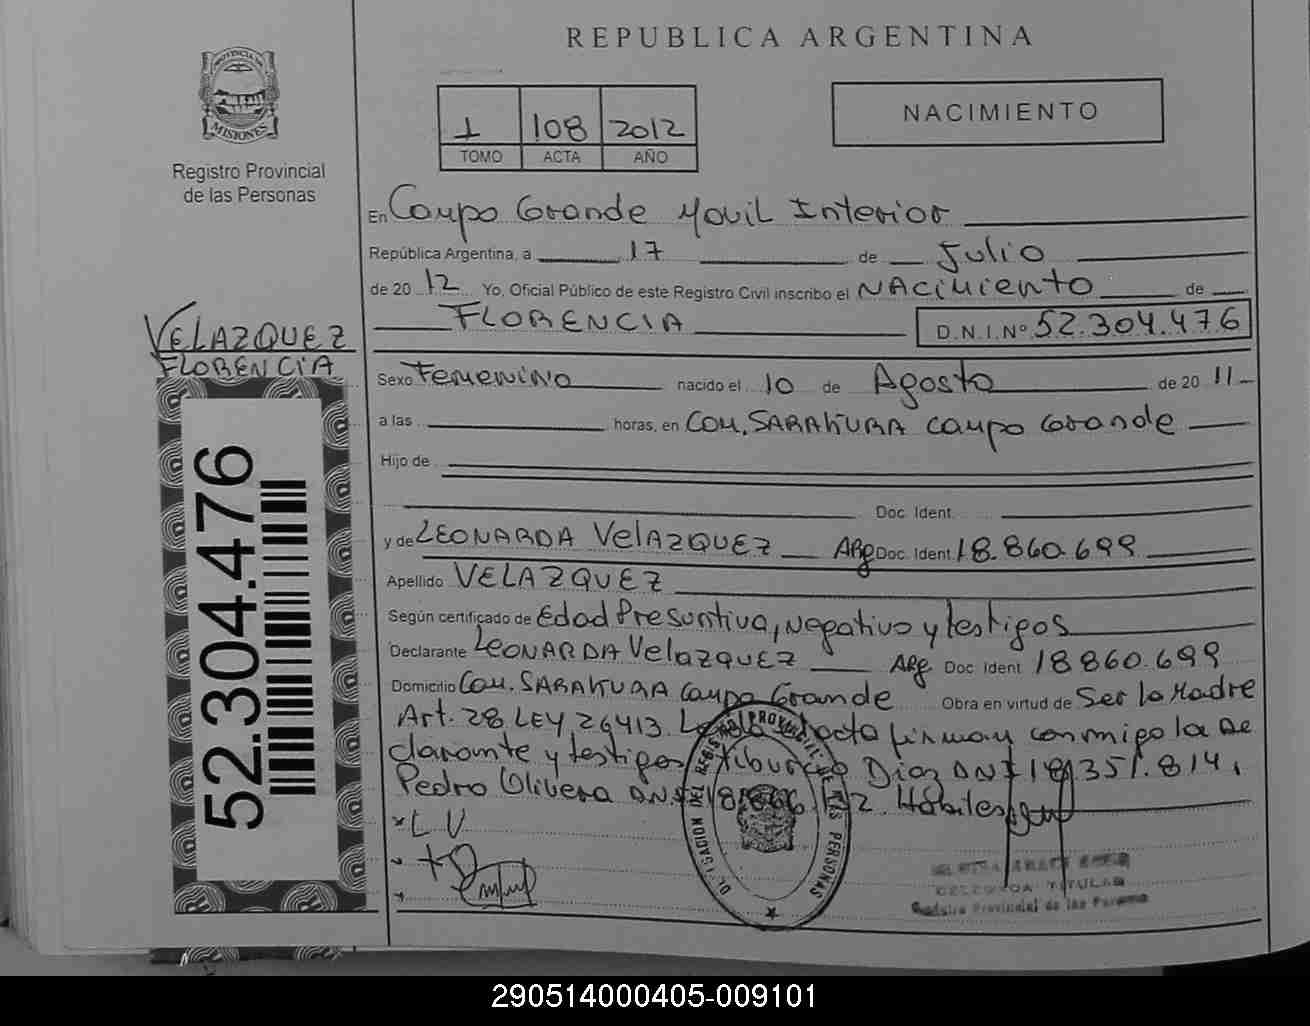 REPUBLICA ARGENTINA
PROVINCIA DE
MISIONES
Registro Provincial
de las Personas
1 108 2012
TOMO ACTA AÑO
NACIMIENTO
En Campo Grande Movil Interior
República Argentina, a 17 de Julio
de 20 12 Yo, Oficial Público de este Registro Civil inscribo el NAcimiento de
FLORENCIA D.N.I.Nº 52.304.476
VELAZQUEZ
FLORENCIA
52.304.476
Sexo Femenino nacido el 10 de Agosto de 20 11
a las horas, en Com. SARAKURA Campo Grande
Hijo de
Doc. Ident.
y de LEONARDA VelAZQUEZ ARg Doc. Ident 18.860.699
Apellido VELAZQUEZ
Según certificado de Edad Presuntiva, Negativo y testigos
Declarante LEONARDA VelazQUEZ ARg Doc Ident 18860.699
Domicilio Com. SARAKURA Campo Grande Obra en virtud de Ser la Madre
Art. 28 LEY 26413. acta firman conmigo la De
clarante y testigos Diaz DNI 351.814,
Pedro Olivera DNI Habiles
x L V
DEL REGISTRO PROVINCIAL DE LAS PERSONAS
TITULAR
Registro Provincial de las Personas
290514000405-009101